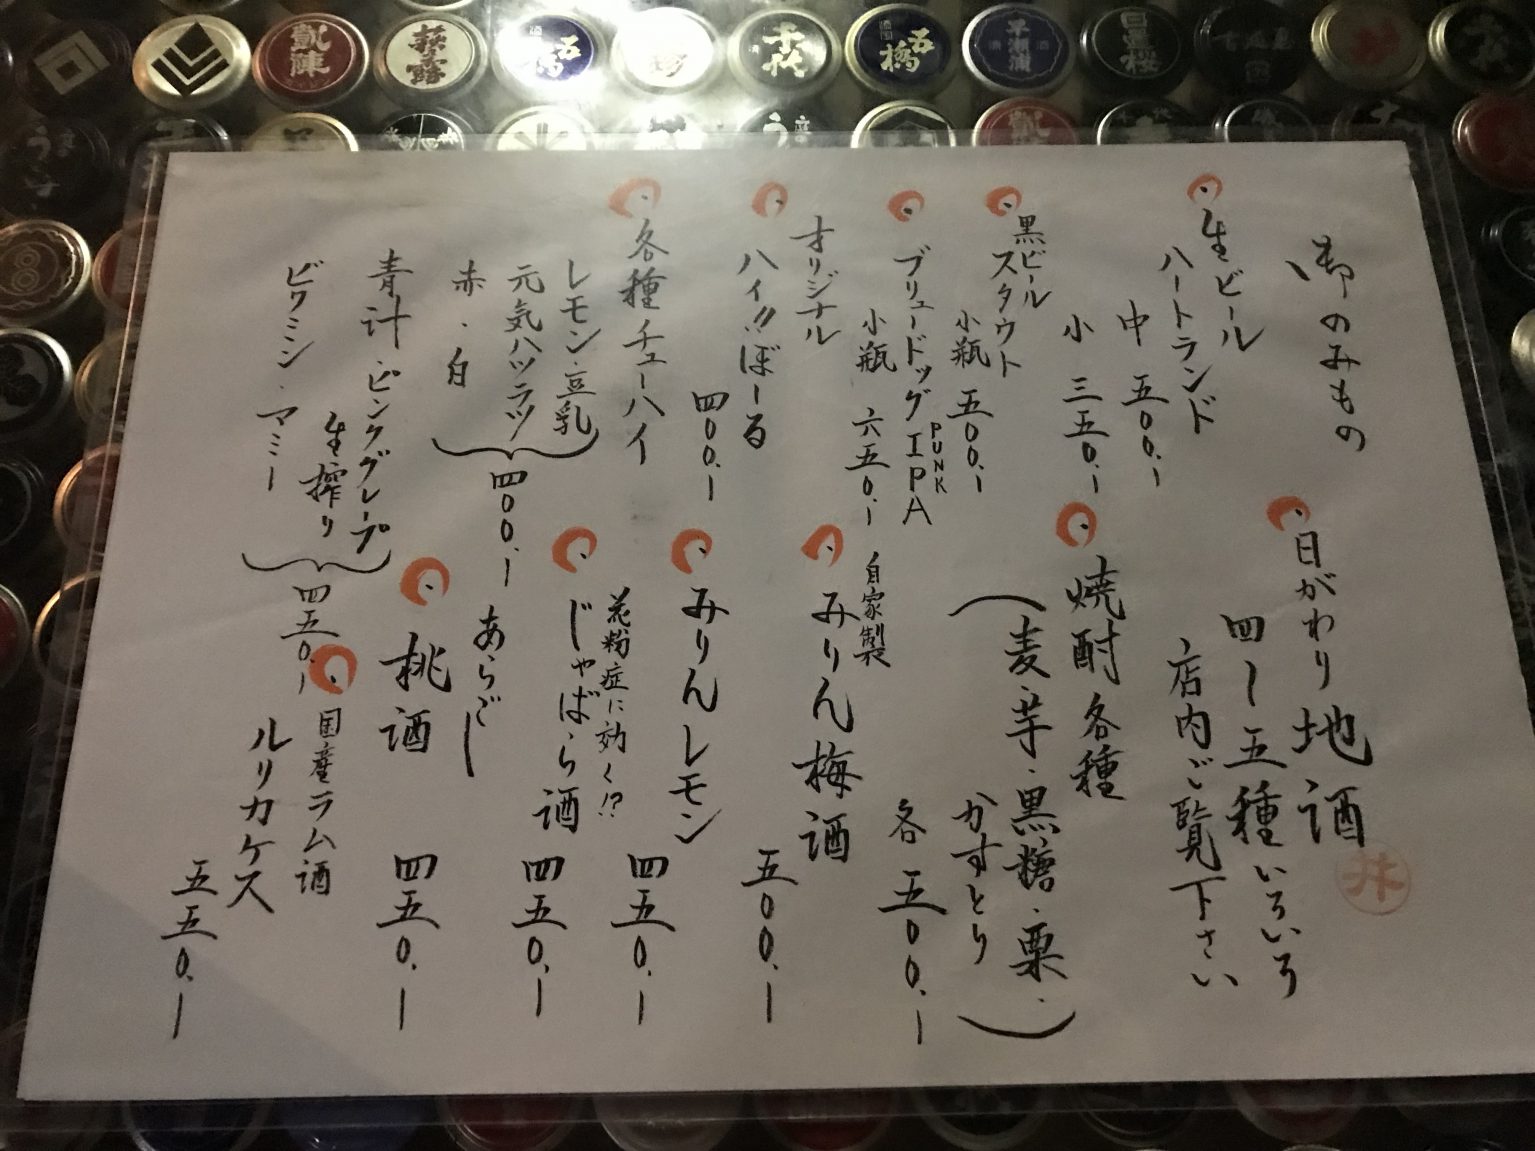 御のみもの
生ビール
ハートランド
中 五〇〇.ー
小 三五〇.ー
黒ビール
スタウト
小瓶 五〇〇.ー
ブリュードッグIPA
PUNK
小瓶 六五〇.ー
オリジナル
ハイ!!ぼーる
四〇〇.ー
各種チューハイ
レモン・豆乳
元気ハツラツ
赤・白
四〇〇.ー
青汁・ピンクグレープ
生搾り
ビクミン・マミー
四五〇.ー
日がわり地酒
四〜五種いろいろ
店内ご覧下さい
井
焼酎各種
(麦・芋・黒糖・栗・
かすとり)
各 五〇〇.ー
自家製
みりん梅酒
五〇〇.ー
みりんレモン
四五〇.ー
花粉症に効く!?
じゃばら酒
四五〇.ー
あらごし
桃酒
四五〇.ー
国産ラム酒
ルリカケス
五五〇.ー
凱陣
萩の露
五橋
千代
五橋
早瀬浦
旦桜